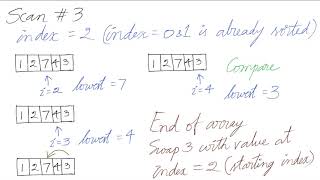 Scan # 3
index = 2 (index = 0&1 is already sorted)
1 2 7 4 3
i=2 lowest = 7
1 2 7 4 3
i=3 lowest = 4
1 2 7 4 3
1 2 7 4 3
Compare
i=4 lowest = 3
End of array
Swap 3 with value at
index = 2 (starting index)